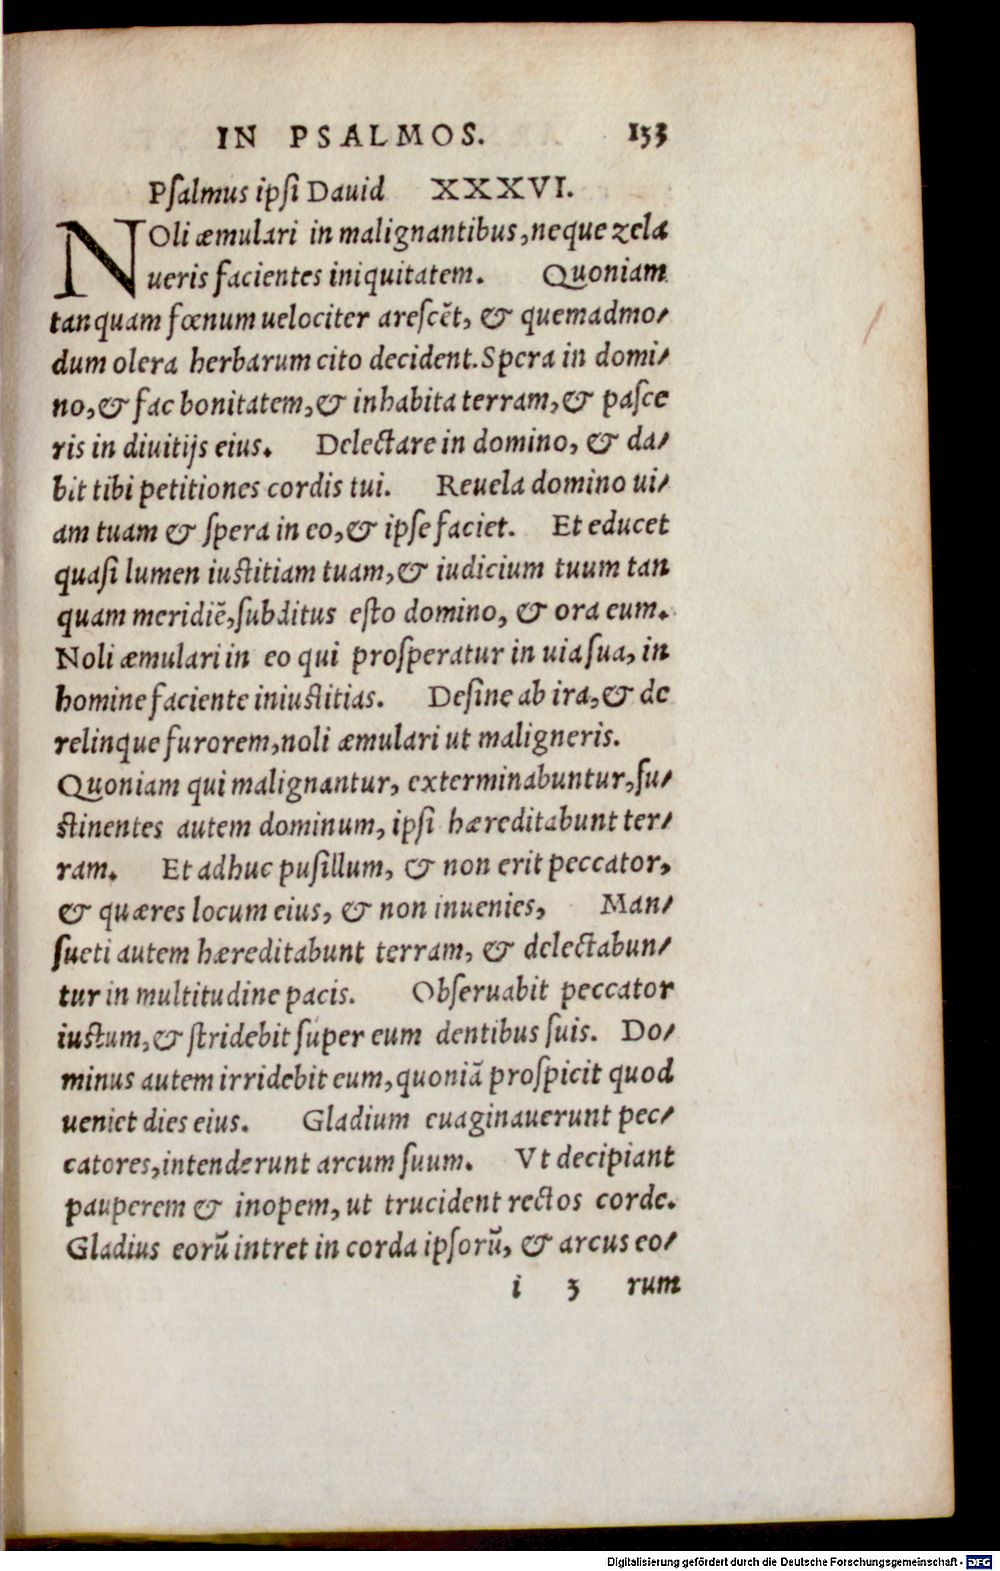 IN PSALMOS. 133
Pſalmus ipſi Dauid XXXVI.
NOli æmulari in malignantibus, neque zela
ueris facientes iniquitatem. Quoniam
tanquam fœnum uelociter areſcẽt, & quemadmo/
dum olera herbarum cito decident. Spera in domi/
no, & fac bonitatem, & inhabita terram, & paſce
ris in diuitijs eius. Delectare in domino, & da/
bit tibi petitiones cordis tui. Reuela domino ui/
am tuam & ſpera in eo, & ipſe faciet. Et educet
quaſi lumen iuſtitiam tuam, & iudicium tuum tan
quam meridiẽ, ſubditus eſto domino, & ora eum.
Noli æmulari in eo qui proſperatur in uia ſua, in
homine faciente iniuſtitias. Deſine ab ira, & de
relinque furorem, noli æmulari ut maligneris.
Quoniam qui malignantur, exterminabuntur, ſu/
ſtinentes autem dominum, ipſi hæreditabunt ter/
ram. Et adhuc puſillum, & non erit peccator,
& quæres locum eius, & non inuenies, Man/
ſueti autem hæreditabunt terram, & delectabun/
tur in multitudine pacis. Obſeruabit peccator
iuſtum, & ſtridebit ſuper eum dentibus ſuis. Do/
minus autem irridebit eum, quoniã proſpicit quod
ueniet dies eius. Gladium euaginauerunt pec/
catores, intenderunt arcum ſuum. Vt decipiant
pauperem & inopem, ut trucident rectos corde.
Gladius eorũ intret in corda ipſorũ, & arcus eo/
i 3 rum
Digitalisierung gefördert durch die Deutsche Forschungsgemeinschaft - DFG